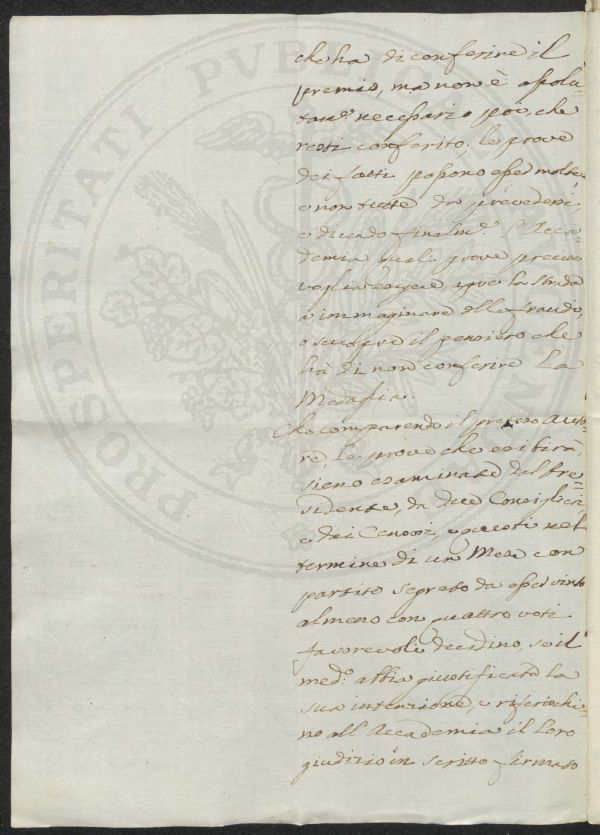 che ha di conferire il
premio, ma non è assolu=
tam.e necessario poi, che
resti conferito. Le prove
dei fatti possono esser molte,
e non tutte da prevedersi,
e dicendo finalm.e l'Acca=
demia quali prove precise
voglia esigere apre la strada
a immaginare delle fraudi,
o scuopre il pensiero che
hà di non conferire La
Medaglia.
Che comparendo il preteso Auto=
re, le prove che esibirà,
sieno esaminate dal Pre=
sidente, da due Consiglieri,
e dai Censori, e questi nel
termine di un Mese con
partito segreto da esser vinto
almeno con quattro voti
favorevoli decidino, se il
med.o abbia giustificata la
sua intenzione, e riferischi=
no all'Accademia il Loro
giudizio in scritto firmato
PROSPERITATI PUBLICAE